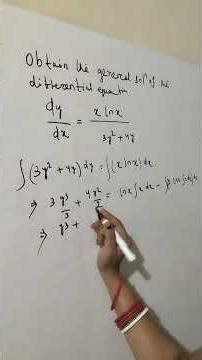 Obtain the general solⁿ of the
differential equation
dy/dx = x ln x / 3y² + 4y
∫(3y² + 4y) dy = ∫(x ln x) dx
⇒ 3 y³/3 + 4y²/2 = ln x ∫x dx - ∫
⇒ y³ +